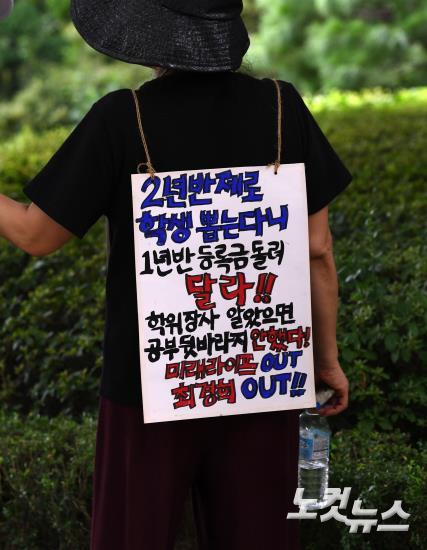 2년반제로
학생 뽑는다니
1년반 등록금 돌려
달라!!
학위장사 알았으면
공부뒷바라지 안했다!
미래라이프 OUT
최경희 OUT!!
노컷뉴스